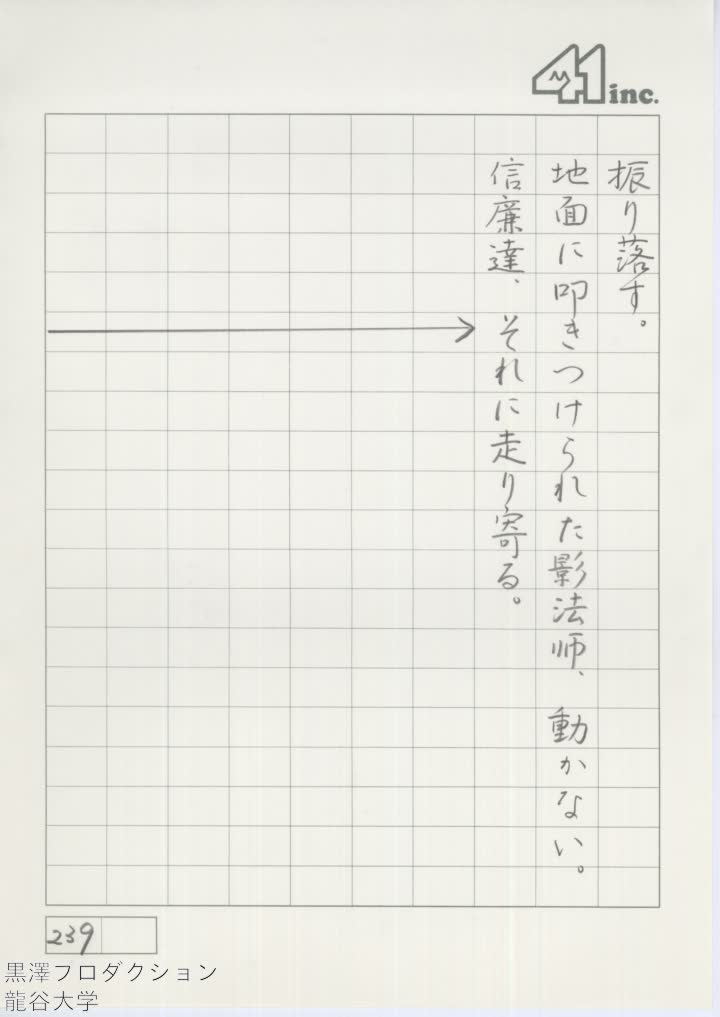 41 inc.
振り落す。
地面に叩きつけられた影法師、動かない。
信廉達、それに走り寄る。
239
黒澤プロダクション
龍谷大学